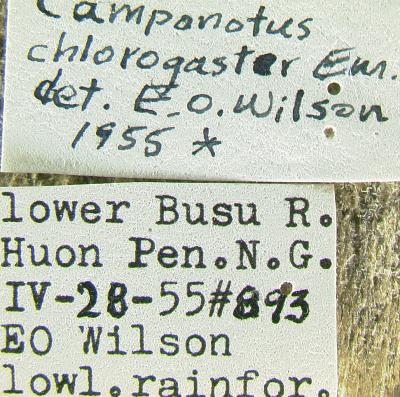 Camponotus
chlorogaster Em.
det. E.O. Wilson
1955 *
lower Busu R.
Huon Pen.N.G.
IV-28-55#893
EO Wilson
lowl.rainfor.